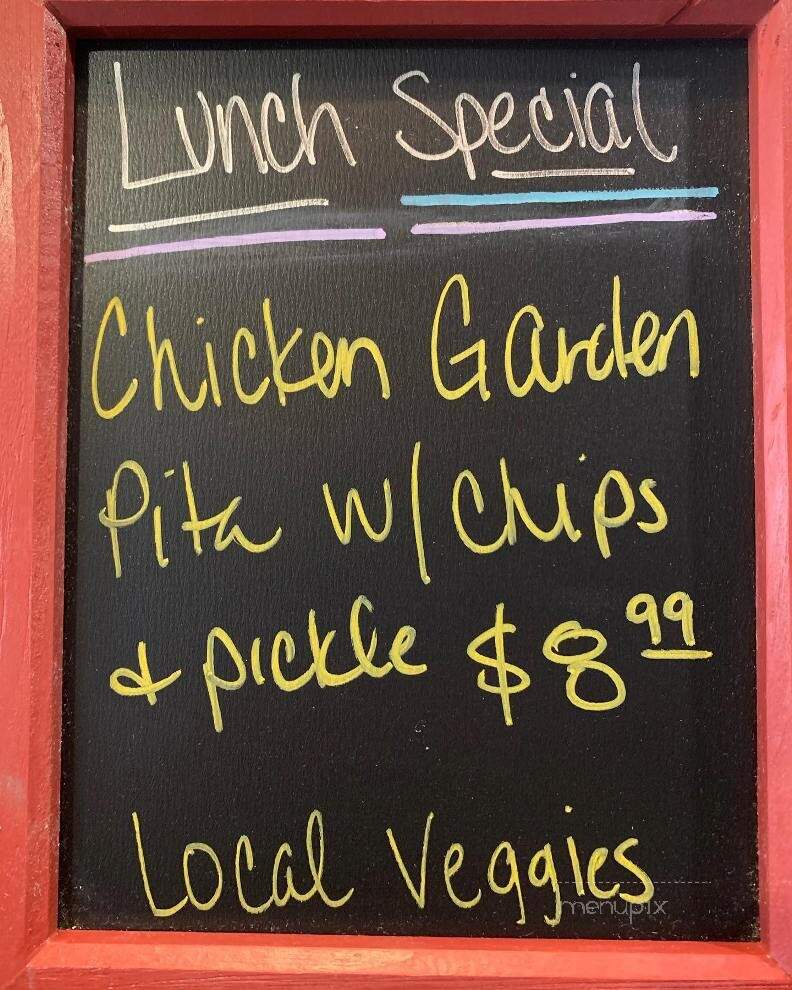 Lunch Special
Chicken Garden
Pita w/ chips
& pickle $8.99
Local Veggies
menupix